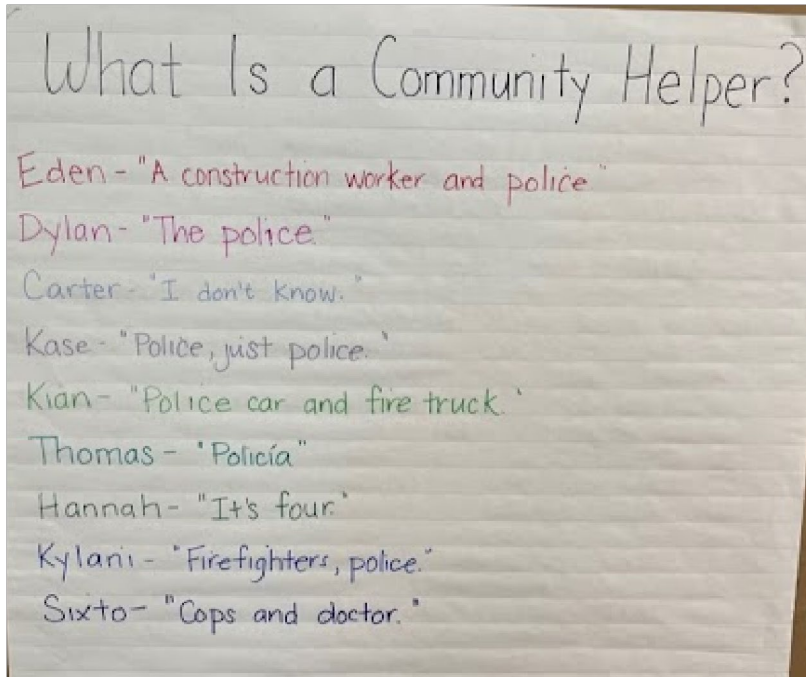 What Is a Community Helper?
Eden - "A construction worker and police"
Dylan - "The police."
Carter - "I don't know."
Kase - "Police, just police."
Kian - "Police car and fire truck."
Thomas - "Policía"
Hannah - "It's four."
Kylani - "Firefighters, police."
Sixto - "Cops and doctor."